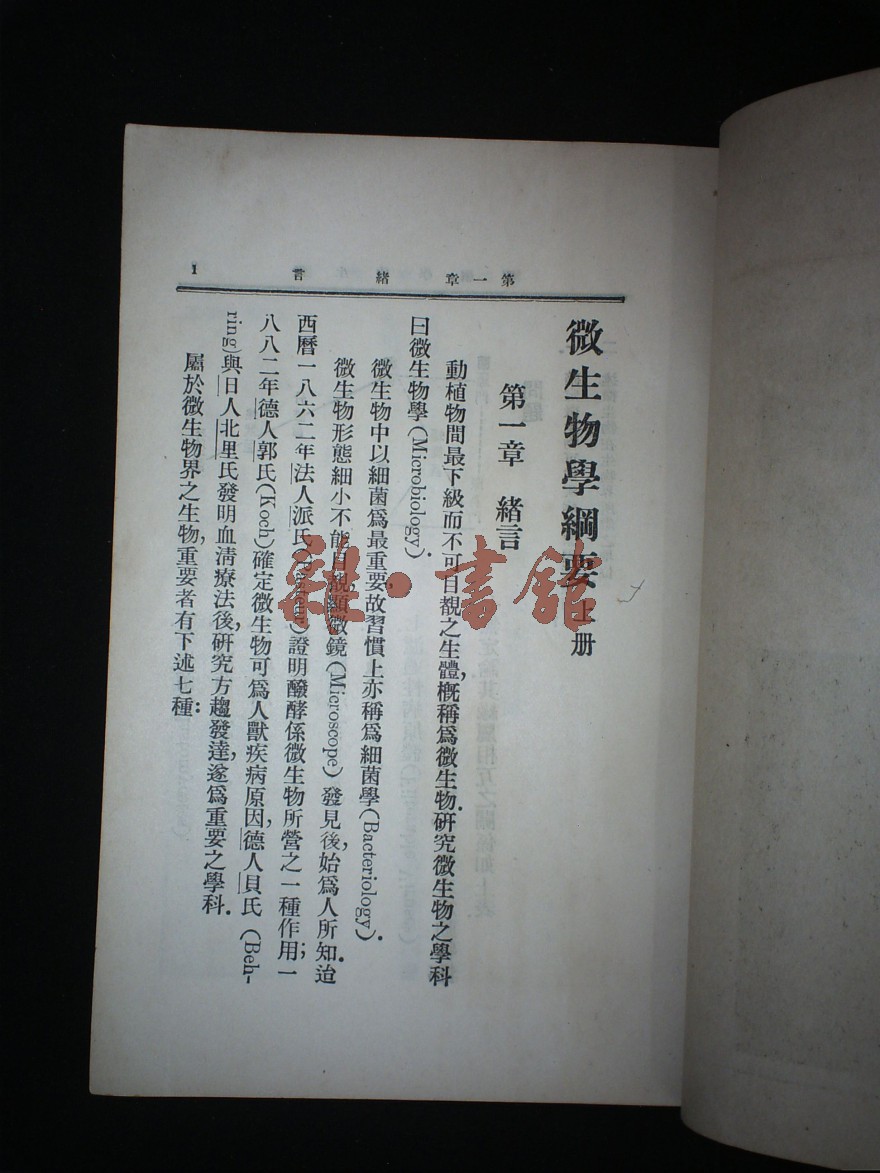 第一章 緒言 1
微生物學綱要 上册
第一章 緒言
動植物間最下級而不可目覩之生體,概稱爲微生物.研究微生物之學科
曰微生物學(Microbiology).
微生物中以細菌爲最重要,故習慣上亦稱爲細菌學(Bacteriology).
微生物形態細小不能目覩,顯微鏡(Microscope)發見後,始爲人所知.迨
西曆一八六二年法人派氏(Pasteur)證明醱酵係微生物所營之一種作用;一
八八二年德人郭氏(Koch)確定微生物可爲人獸疾病原因,德人貝氏(Beh-
ring)與日人北里氏發明血淸療法後,研究方趨發達,遂爲重要之學科.
屬於微生物界之生物,重要者有下述七種:
雜·書館